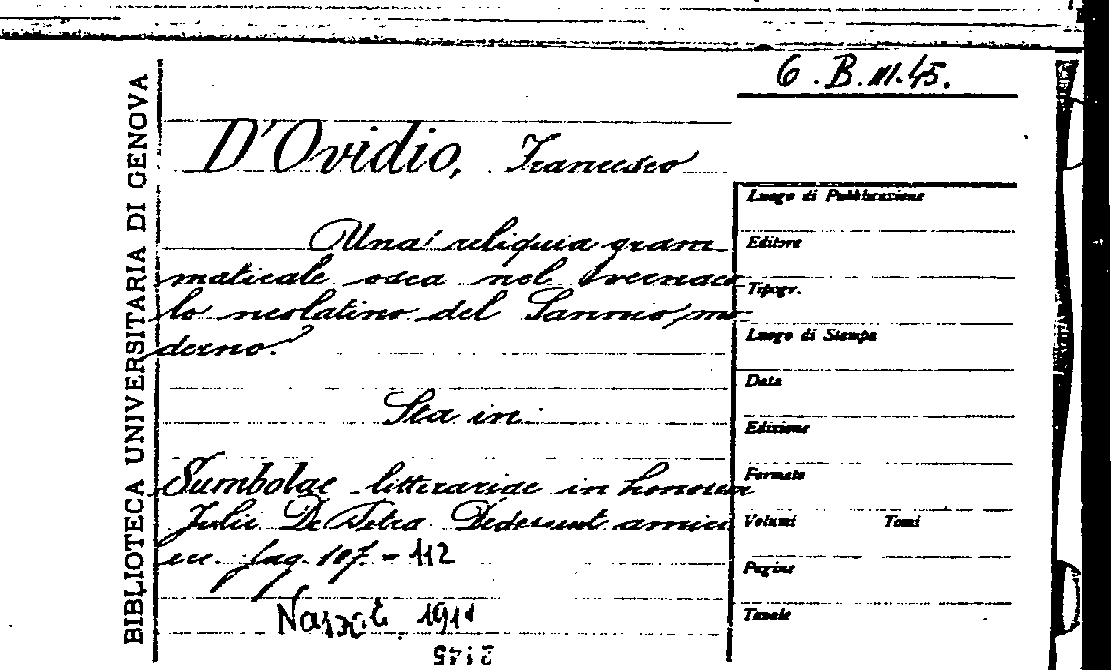 6.B.III.45.
BIBLIOTECA UNIVERSITARIA DI GENOVA
D'Ovidio, Francesco
Una reliquia gram
maticale osca nel vernaco
lo neolatino del Sannio mo-
derno.
Sta in:
Sumbolae litterariae in honorem
Julii De Petra Dederunt amici
ecc. pag. 107. - 112
Napoli 1911
2145
Luogo di Pubblicazione
Editore
Tipogr.
Luogo di Stampa
Data
Edizione
Formato
Volumi Tomi
Pagine
Tavole